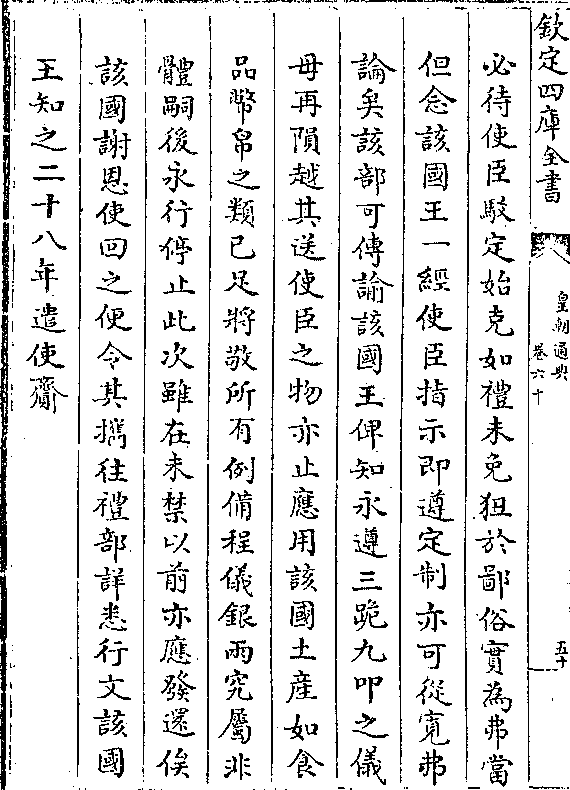 欽定四庫全書
皇朝通典
卷六十
五十
必待使臣駁定始克如禮未免狃於鄙俗實為弗當
但念該國王一經使臣指示即遵定制亦可從寛弗
論矣該部可傳諭該國王俾知永遵三跪九叩之儀
毋再隕越其送使臣之物亦止應用該國土産如食
品幣帛之類已足將敬所有例備程儀銀兩究屬非
體嗣後永行停止此次雖在未禁以前亦應發還俟
該國謝恩使回之便令其攜往禮部詳悉行文該國
王知之二十八年遣使齎